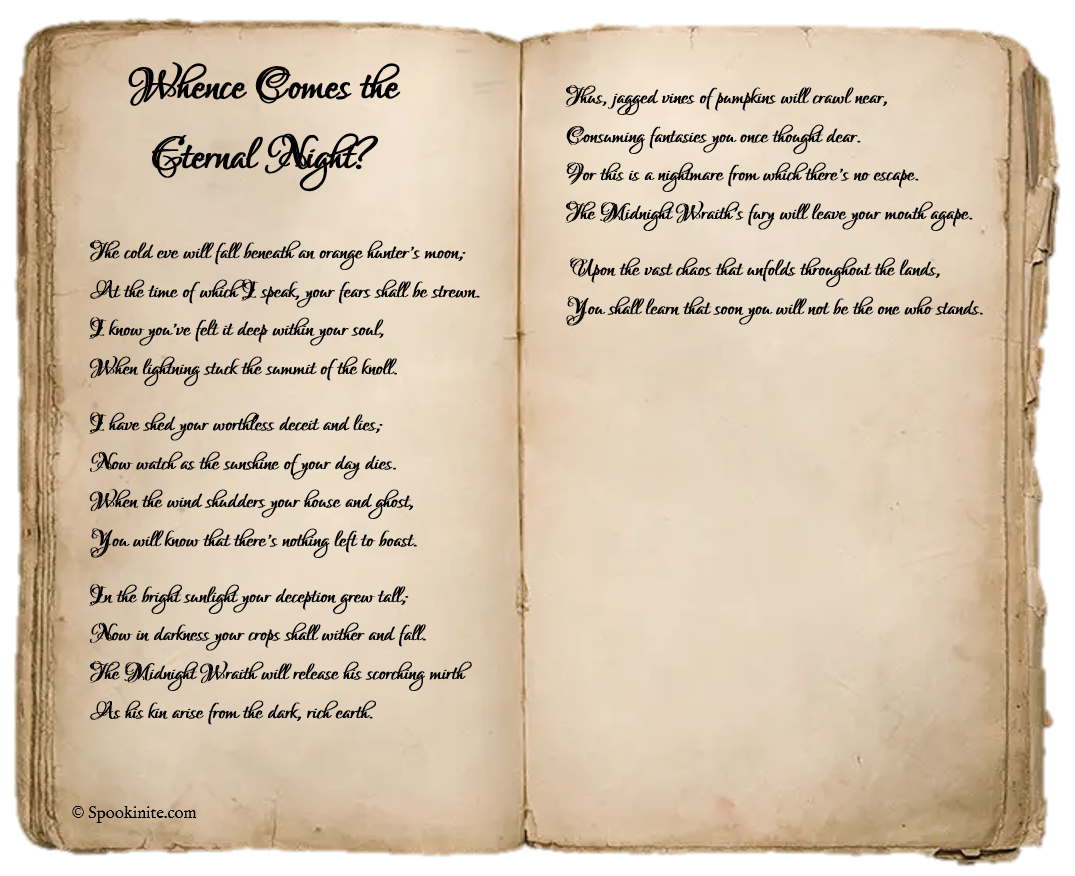 Whence Comes the
Eternal Night?
The cold eve will fall beneath an orange hunter's moon;
At the time of which I speak, your fears shall be strewn.
I know you've felt it deep within your soul,
When lightning stuck the summit of the knoll.
I have shed your worthless deceit and lies;
Now watch as the sunshine of your day dies.
When the wind shudders your house and ghost,
You will know that there's nothing left to boast.
In the bright sunlight your deception grew tall;
Now in darkness your crops shall wither and fall.
The Midnight Wraith will release his scorching mirth
As his kin arise from the dark, rich earth.
© Spookinite.com
Thus, jagged vines of pumpkins will crawl near,
Consuming fantasies you once thought dear.
For this is a nightmare from which there's no escape.
The Midnight Wraith's fury will leave your mouth agape.
Upon the vast chaos that unfolds throughout the lands,
You shall learn that soon you will not be the one who stands.